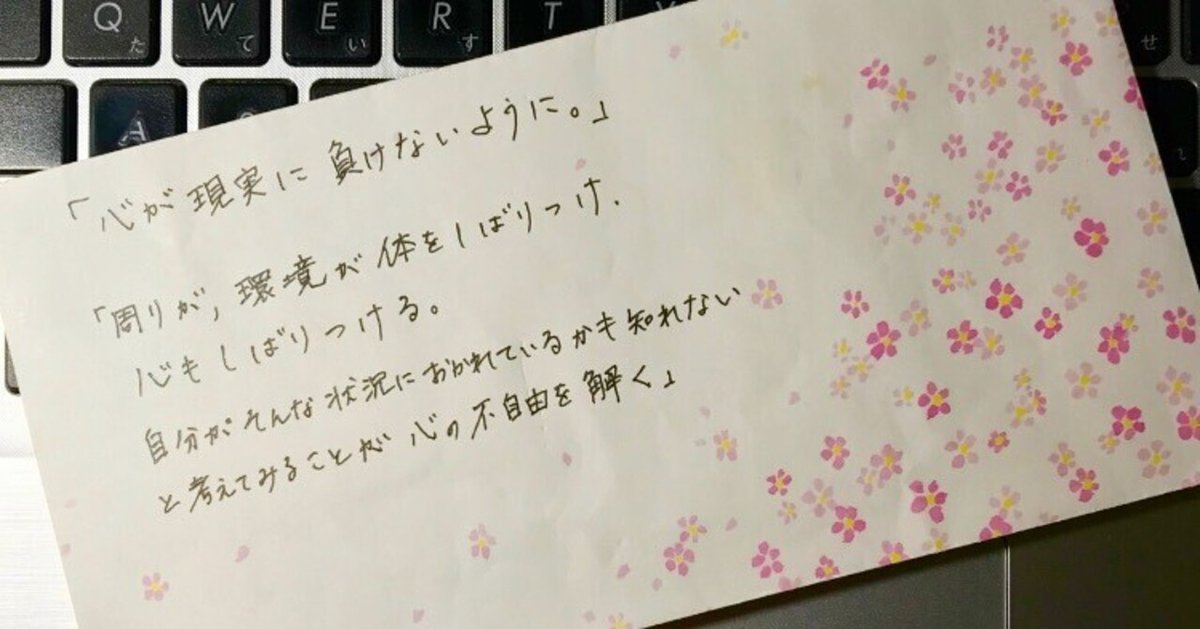 Q
た
W
て
E
い
R
す
T
Y
A
せ
「心が現実に負けないように。」
「周りが,環境が体をしばりつけ.
心もしばりつける。
自分がそんな状況におかれているかも知れない
と考えてみることが心の不自由を解く」